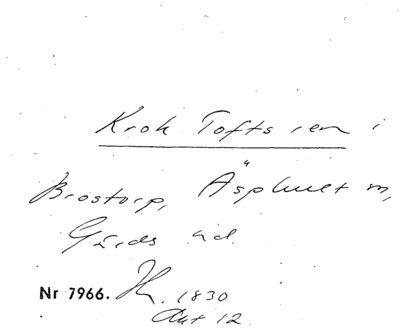 Krok Tofts ren i
Brostorp, Äsphult sn,
Gärds hd.
Nr 7966. 1830
Akt 12